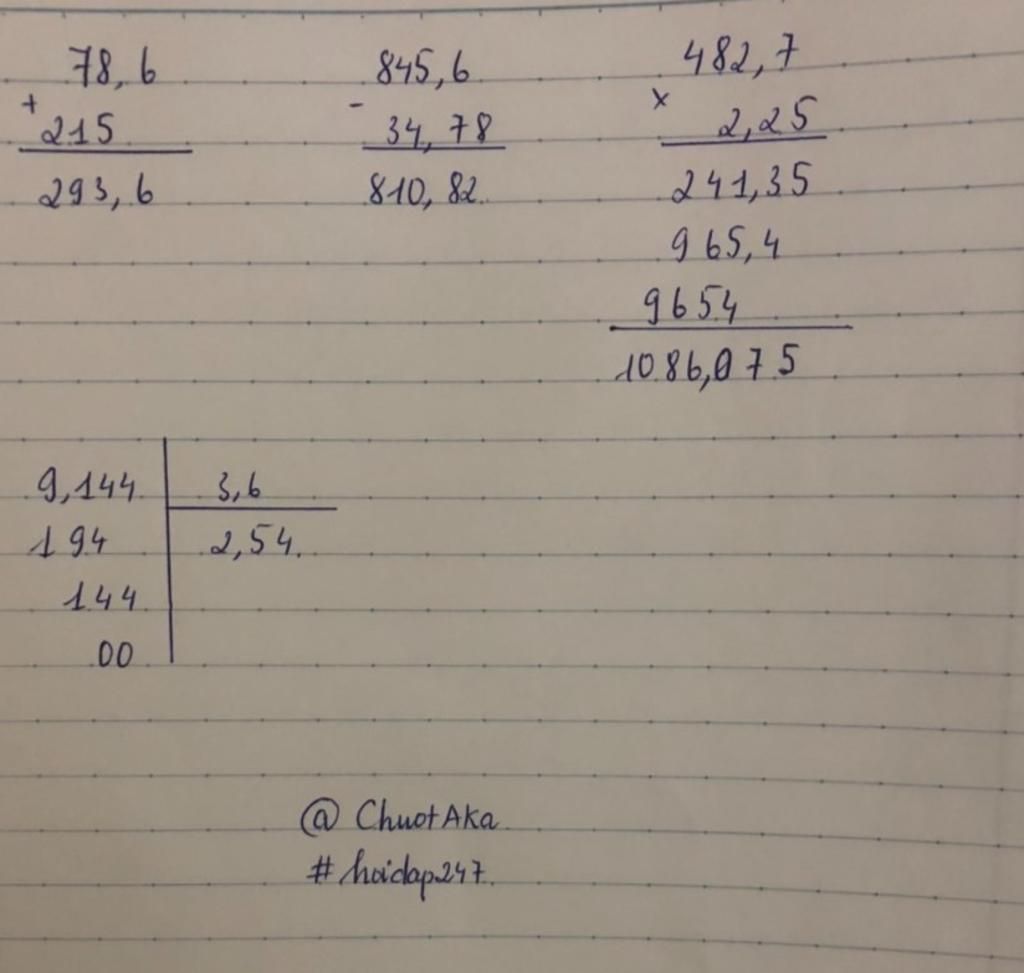 78,6
+
215
293,6
845,6
-
34,78
810,82
482,7
x
2,25
241,35
965,4
9654
1086,075
9,144 3,6
194 2,54
144
00
@ ChuotAka
#hoidap247